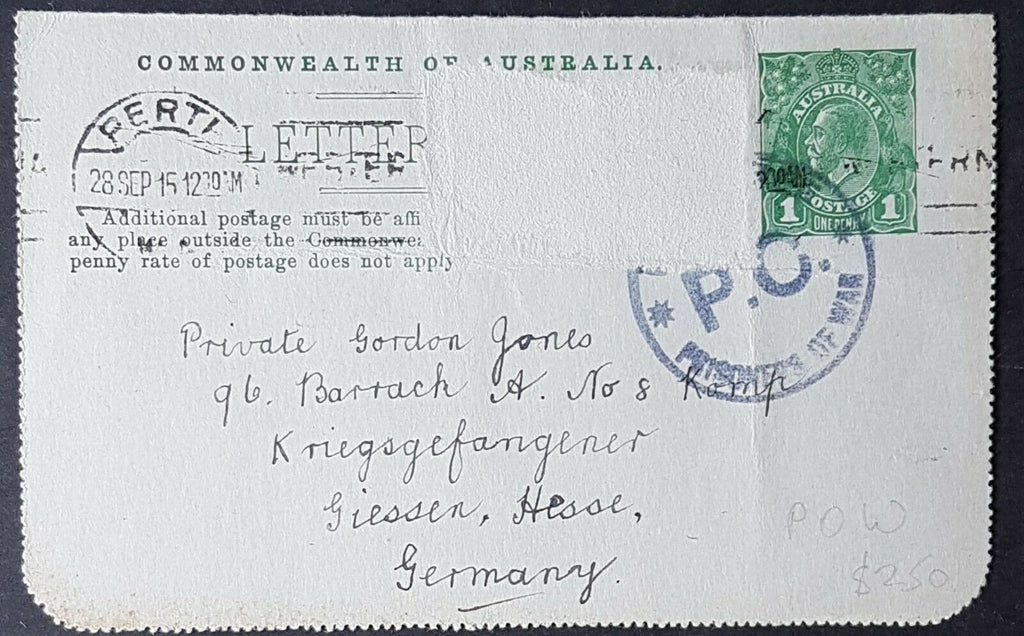 COMMONWEALTH OF AUSTRALIA.
PERTH
28 SEP 15 12 30 AM
LETTER
Additional postage must be affi
any place outside the Commonwea
penny rate of postage does not apply
AUSTRALIA
POSTAGE
1 ONE PENNY 1
P.C.
PRISONERS OF WAR
Private Gordon Jones
96. Barrack A. No 8 Komp
Kriegsgefangener
Giessen, Hesse,
Germany.
POW
$250